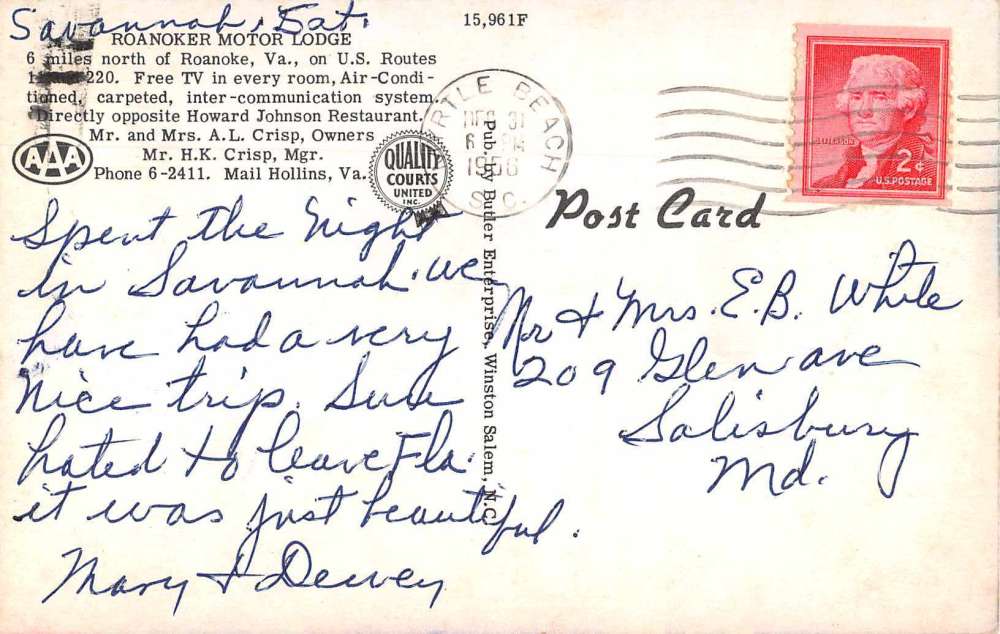 Savannah, Sat.
15,961F
ROANOKER MOTOR LODGE
6 miles north of Roanoke, Va., on U.S. Routes
220. Free TV in every room, Air-Condi-
tioned, carpeted, inter-communication system.
Directly opposite Howard Johnson Restaurant.
Mr. and Mrs. A.L. Crisp, Owners
Mr. H.K. Crisp, Mgr.
Phone 6-2411. Mail Hollins, Va.
AAA
QUALITY
COURTS
UNITED
INC.
Spent the Night
in Savannah. We
have had a very
Nice trip. Sure
hated to leave Fla.
it was just beautiful.
Mary & Dewey
Pub. by Butler Enterprise, Winston Salem, N.C.
RTLE BEACH
DEC 31
6 PM
1956
S.C.
JEFFERSON
2¢
U.S. POSTAGE
Post Card
Mr & Mrs. E.B. White
209 Glen ave
Salisbury
Md.